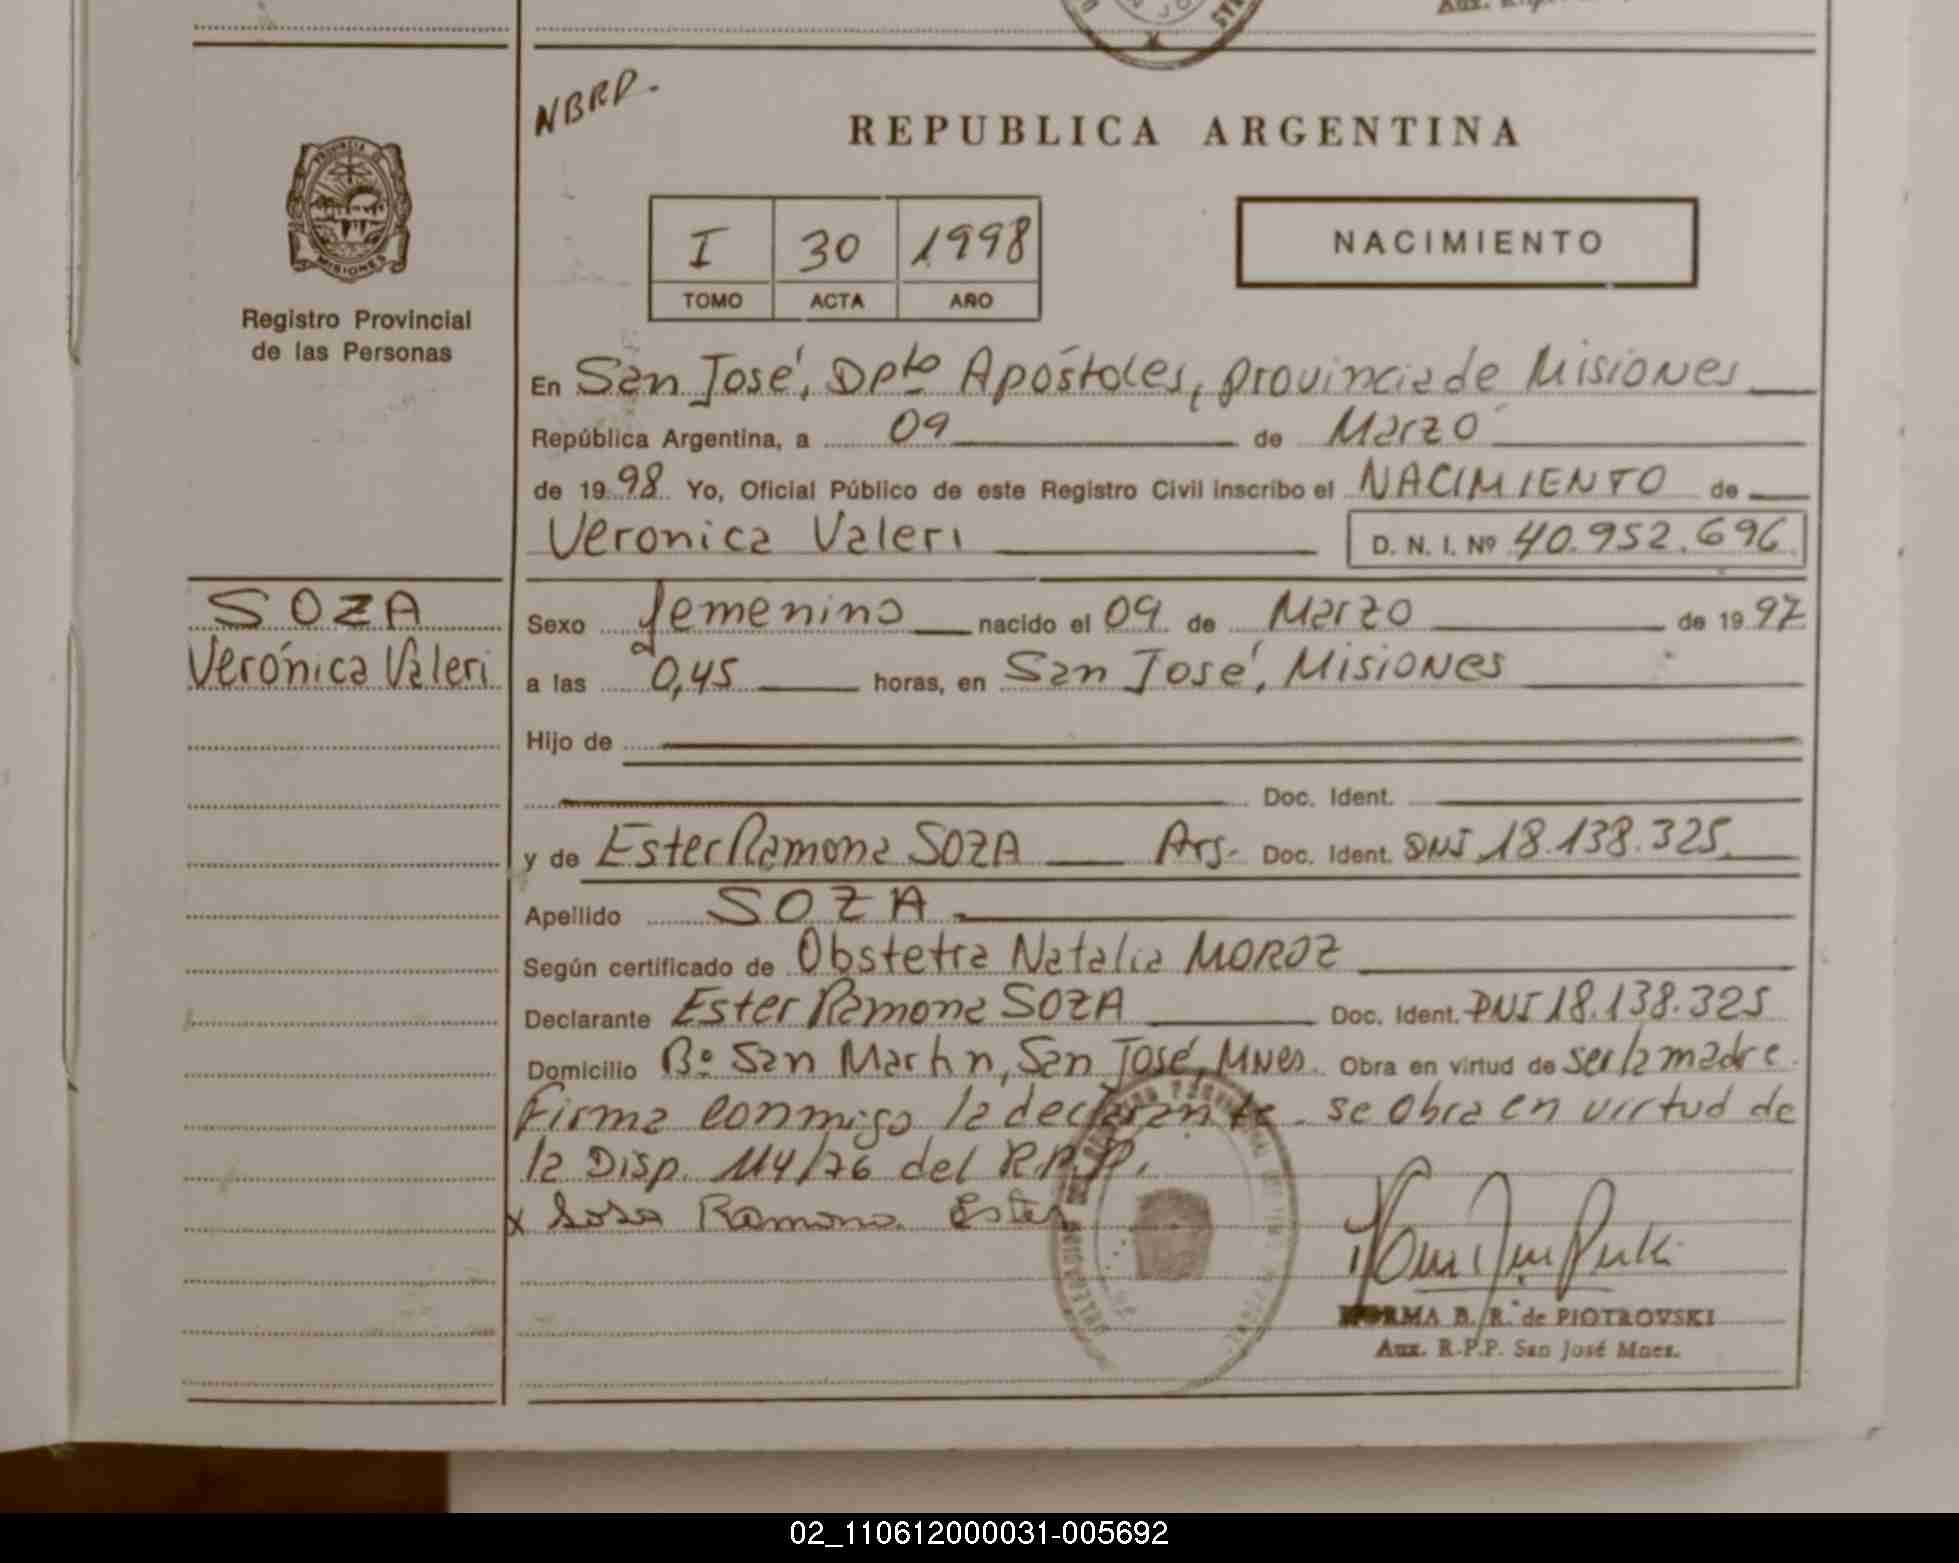 NBRP.
REPUBLICA ARGENTINA
PROVINCIA DE
MISIONES
Registro Provincial
de las Personas
I 30 1998
TOMO ACTA AÑO
NACIMIENTO
En San José, Dpto Apóstoles, provincia de Misiones
República Argentina, a 09 de Marzo
de 1998 Yo, Oficial Público de este Registro Civil inscribo el NACIMIENTO de
Veronica Valeri D. N. I. Nº 40.952.696
SOZA
Verónica Valeri
Sexo femenino nacido el 09 de Marzo de 1997
a las 0,45 horas, en San José, Misiones
Hijo de
Doc. Ident.
y de Ester Ramona SOZA Arg. Doc. Ident. DNI 18.138.325
Apellido SOZA
Según certificado de Obstetra Natalia MOROZ
Declarante Ester Ramona SOZA Doc. Ident. DNI 18.138.325
Domicilio Bº San Martin, San José, Mnes. Obra en virtud de ser la madre.
Firma conmigo la declarante. se obra en virtud de
la Disp. 114/76 del R.P.P.
x Sosa Ramona Ester
NORMA B. R. de PIOTROVSKI
Aux. R.P.P. San José Mnes.
02_110612000031-005692